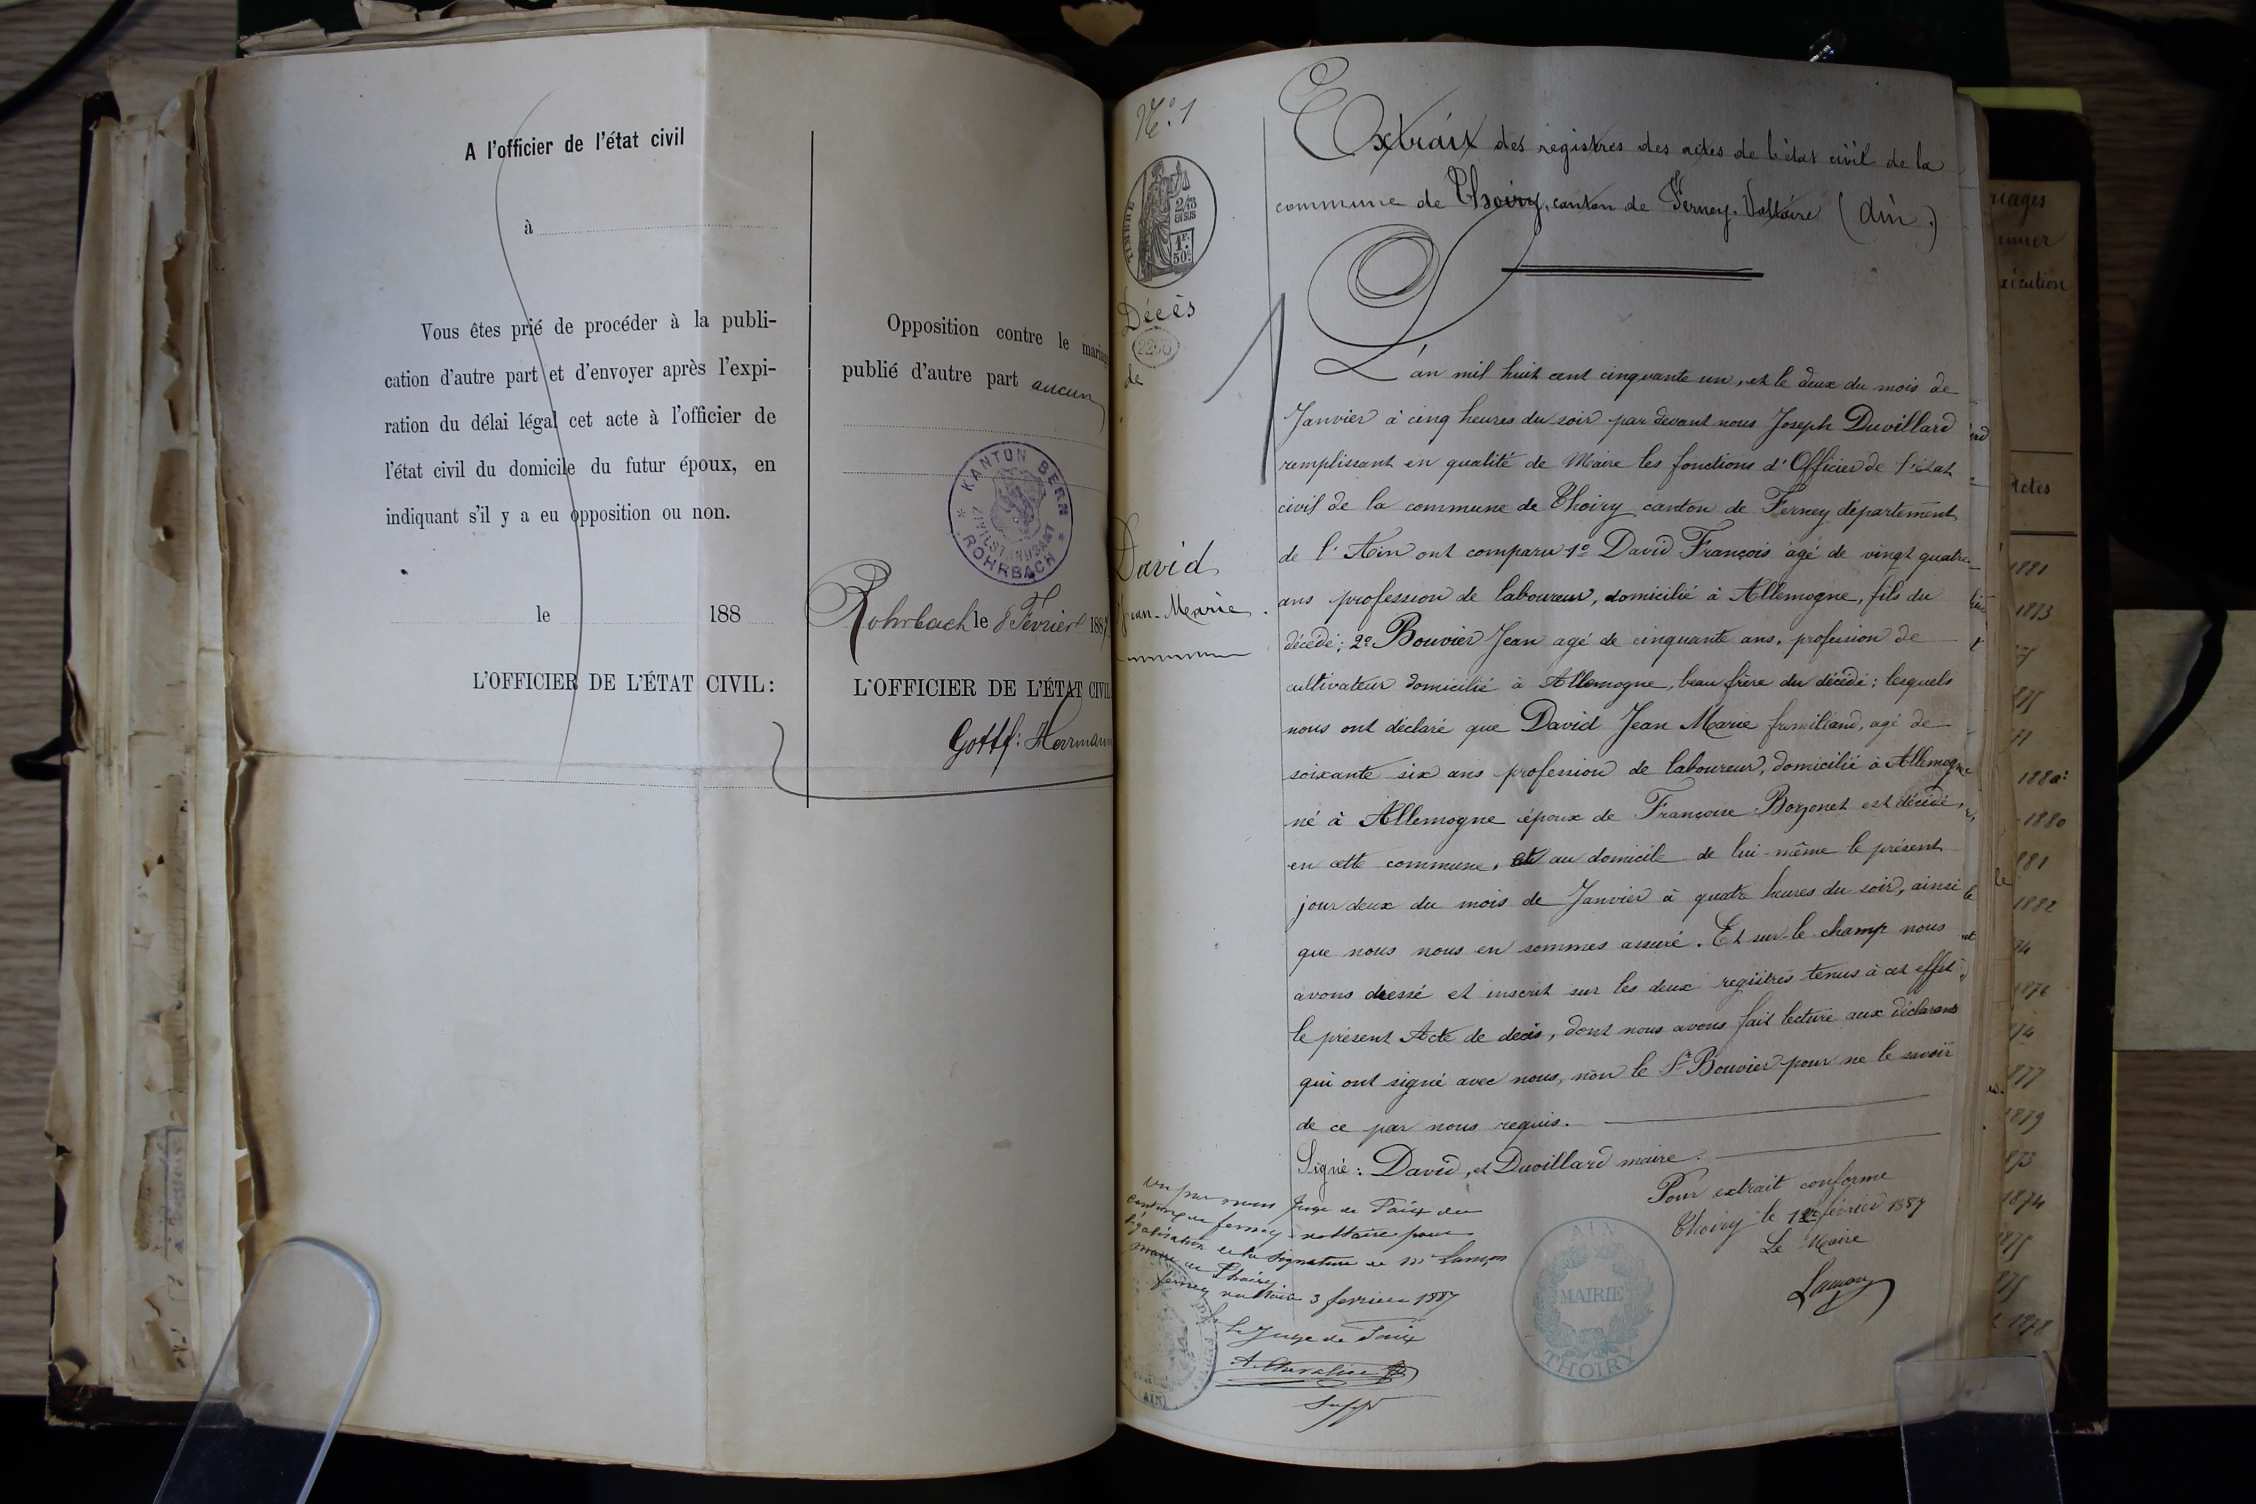 A l'officier de l'état civil
à
Vous êtes prié de procéder à la publi-
cation d'autre part et d'envoyer après l'expi-
ration du délai légal cet acte à l'officier de
l'état civil du domicile du futur époux, en
indiquant s'il y a eu opposition ou non.
le 188
L'OFFICIER DE L'ÉTAT CIVIL:
Opposition contre le mariage
publié d'autre part aucun
KANTON BERN
ZIVILSTANDSAMT
ROHRBACH
Rohrbach le 8 Février 1887
L'OFFICIER DE L'ÉTAT CIVIL
Gottf: Herrmann
N.º 1
TIMBRE
2/10
EN SUS
1F.
50C.
Décès
de
David
Jean-Marie
Extrait des registres des actes de l'état civil de la
commune de Thoiry, canton de Ferney-Voltaire (Ain.)
L'an mil huit cent cinquante un, et le deux du mois de
Janvier à cinq heures du soir par devant nous Joseph Duvillard
remplissant en qualité de Maire les fonctions d'Officier de l'état
civil de la commune de Thoiry canton de Ferney département
de l'Ain ont comparu 1º David François agé de vingt quatre
ans profession de laboureur, domicilié à Allemogne, fils du
décédé; 2º Bouvier Jean agé de cinquante ans, profession de
cultivateur domicilié à Allemogne, beau frère du décédé; lesquels
nous ont déclaré que David Jean Marie familiand, agé de
soixante six ans profession de laboureur, domicilié à Allemogne
né à Allemogne époux de Françoise Borzonet est décédé,
en cette commune, au domicile de lui-même le présent
jour deux du mois de Janvier à quatre heures du soir, ainsi
que nous nous en sommes assuré. Et sur-le-champ nous
avons dressé et inscrit sur les deux registres tenus à cet effet
le présent Acte de decès, dont nous avons fait lecture aux déclarants
qui ont signé avec nous, non le Sr Bouvier pour ne le savoir
de ce par nous requis.
Signé: David, et Duvillard maire.
Pour extrait conforme
Thoiry le 1er février 1887
Le Maire
Lançon
AIN
MAIRIE
THOIRY
Vu par nous Juge de Paix du
canton de ferney voltaire pour
légalisation de la signature de Mr Lançon
maire de Thoiry.
ferney voltaire 3 fevrier 1887
le Juge de Paix
A. Chevalier
Suppt